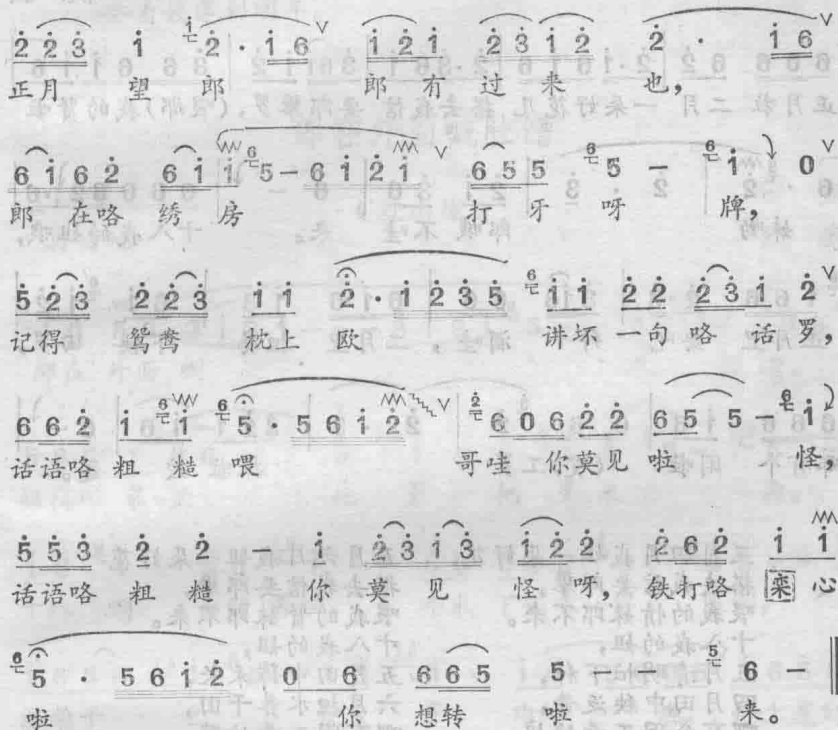 2 2 3 1 2 · 1 6 1 2 1 2 3 1 2 2 · 1 6
正月 望 郎 郎 有 过 来 也,
6 1 6 2 6 1 1 5 — 6 1 2 1 6 5 5 5 — 1 0
郎 在咯 绣 房 打 牙 呀 牌,
5 2 3 2 2 3 1 1 2 · 1 2 3 5 1 1 2 2 2 3 1 2
记得 鸳鸯 枕上 欧 讲坏 一句 咯 话 罗,
6 6 2 1 1 5 · 5 6 1 2 6 0 6 2 2 6 5 5 — 1
话语咯 粗 糙 喂 哥哇 你莫见 啦 怪,
5 5 3 2 2 — 1 2 3 1 3 1 2 2 2 6 2 1 1
话语咯 粗 糙 你 莫 见 怪 呀, 铁打咯 栾 心
5 · 5 6 1 2 0 6 6 6 5 5 — 6 —
啦 你 想转 啦 来。